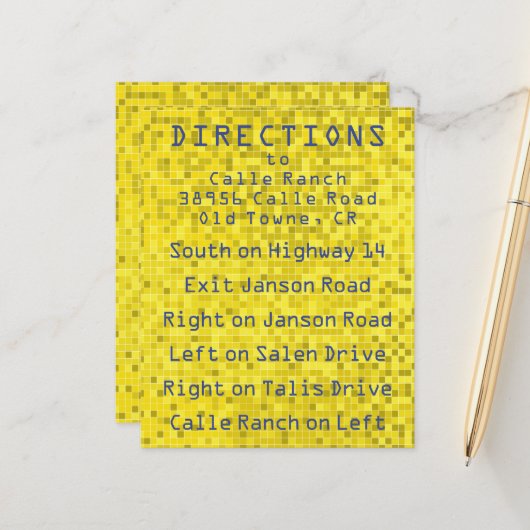 DIRECTIONS
to
Calle Ranch
38956 Calle Road
Old Towne, CR
South on Highway 14
Exit Janson Road
Right on Janson Road
Left on Salen Drive
Right on Talis Drive
Calle Ranch on Left